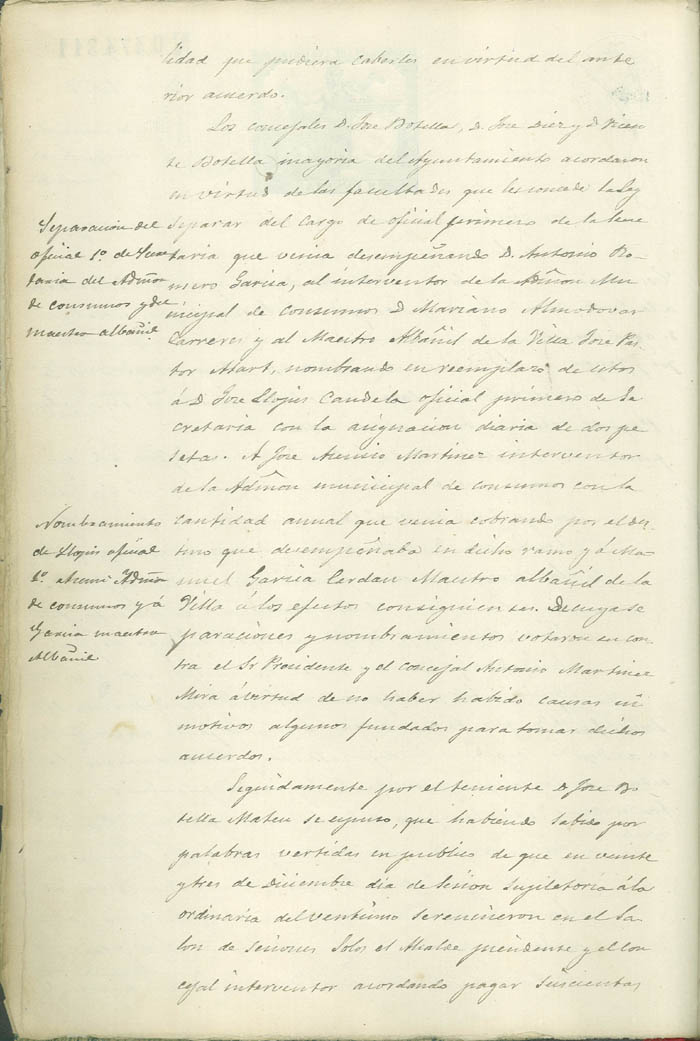 lidad que pudiera caberles en virtud del ante
rior acuerdo.
Los concejales D. Jose Botella, D. Jose Diez y D. Vicen
te Botella mayoria del Ayuntamiento acordaron
en virtud de las facultades que les concede la Ley
Separacion del
oficial 1º de Secre
taria del Admon
de consumos y del
maestro albañil
separar del cargo de oficial primero de la Secre
taria que venia desempeñando D. Antonio Ro
mero Garcia, al interventor de la Admon Mu
nicipal de consumos D. Mariano Almodovar
Carreres y al Maestro Albañil de la Villa Jose Pas
tor Mart, nombrando en reemplazo de estos
á D. Jose Llopis Candela oficial primero de Se
cretaria con la asignacion diaria de dos pe
setas. A Jose Asensio Martinez interventor
de la Admon municipal de consumos con la
Nombramiento
de Llopis oficial
1º Admon
de consumos y á
Garcia maestro
Albañil
cantidad anual que venia cobrando por el des
tino que desempeñaba en dicho ramo y á Ma
nuel Garcia Cerdan Maestro albañil de la
Villa á los efectos consiguientes. De cuya se
paraciones y nombramientos votaron en con
tra el Sr Presidente y el concejal Antonio Martinez
Mira á virtud de no haber habido causas ni
motivos algunos fundados para tomar dichos
acuerdos.
Seguidamente por el teniente D. Jose Bo
tella Mateu se expuso, que habiendo sabido por
palabras vertidas en publico de que en veinte
y tres de Diciembre dia de sesion supletoria á la
ordinaria del ventiuno se reunieron en el Sa
lon de sesiones solos el Alcalde presidente y el con
cejal interventor acordando pagar suscientas